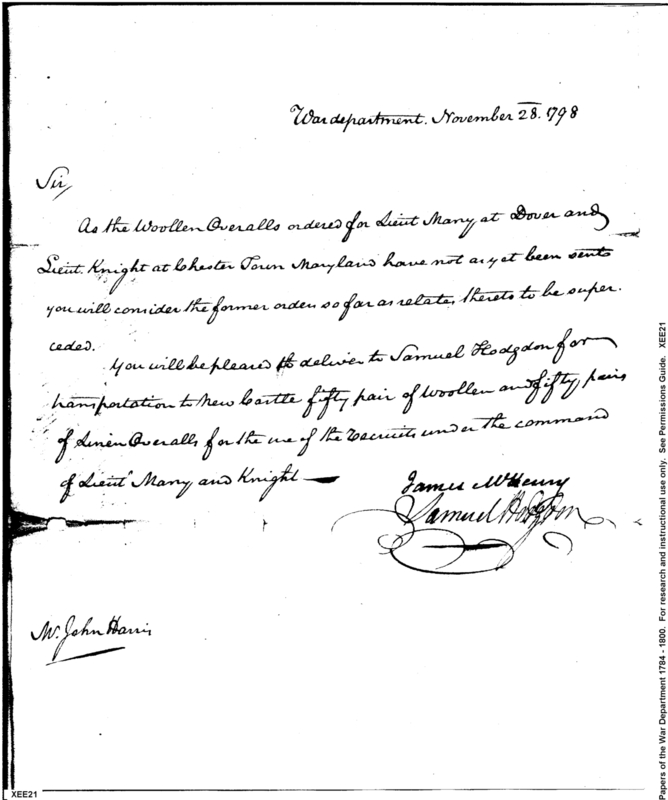 War department. November 28. 1798
Sir,
As the Woollen Overalls ordered for Lieut Many at Dover and
Lieut. Knight at Chester Town Maryland have not as yet been sent
you will consider the former order so far as relates thereto to be super-
ceded.
You will be pleased to deliver to Samuel Hodgdon for
transportation to New Castle fifty pair of Woollen and fifty pairs
of Linen Overalls for the use of the Recruits under the command
of Lieuts Many and Knight —
James McHenry
Samuel Hodgdon
Mr. John Harris
XEE21
Papers of the War Department 1784 - 1800. For research and instructional use only. See Permissions Guide. XEE21